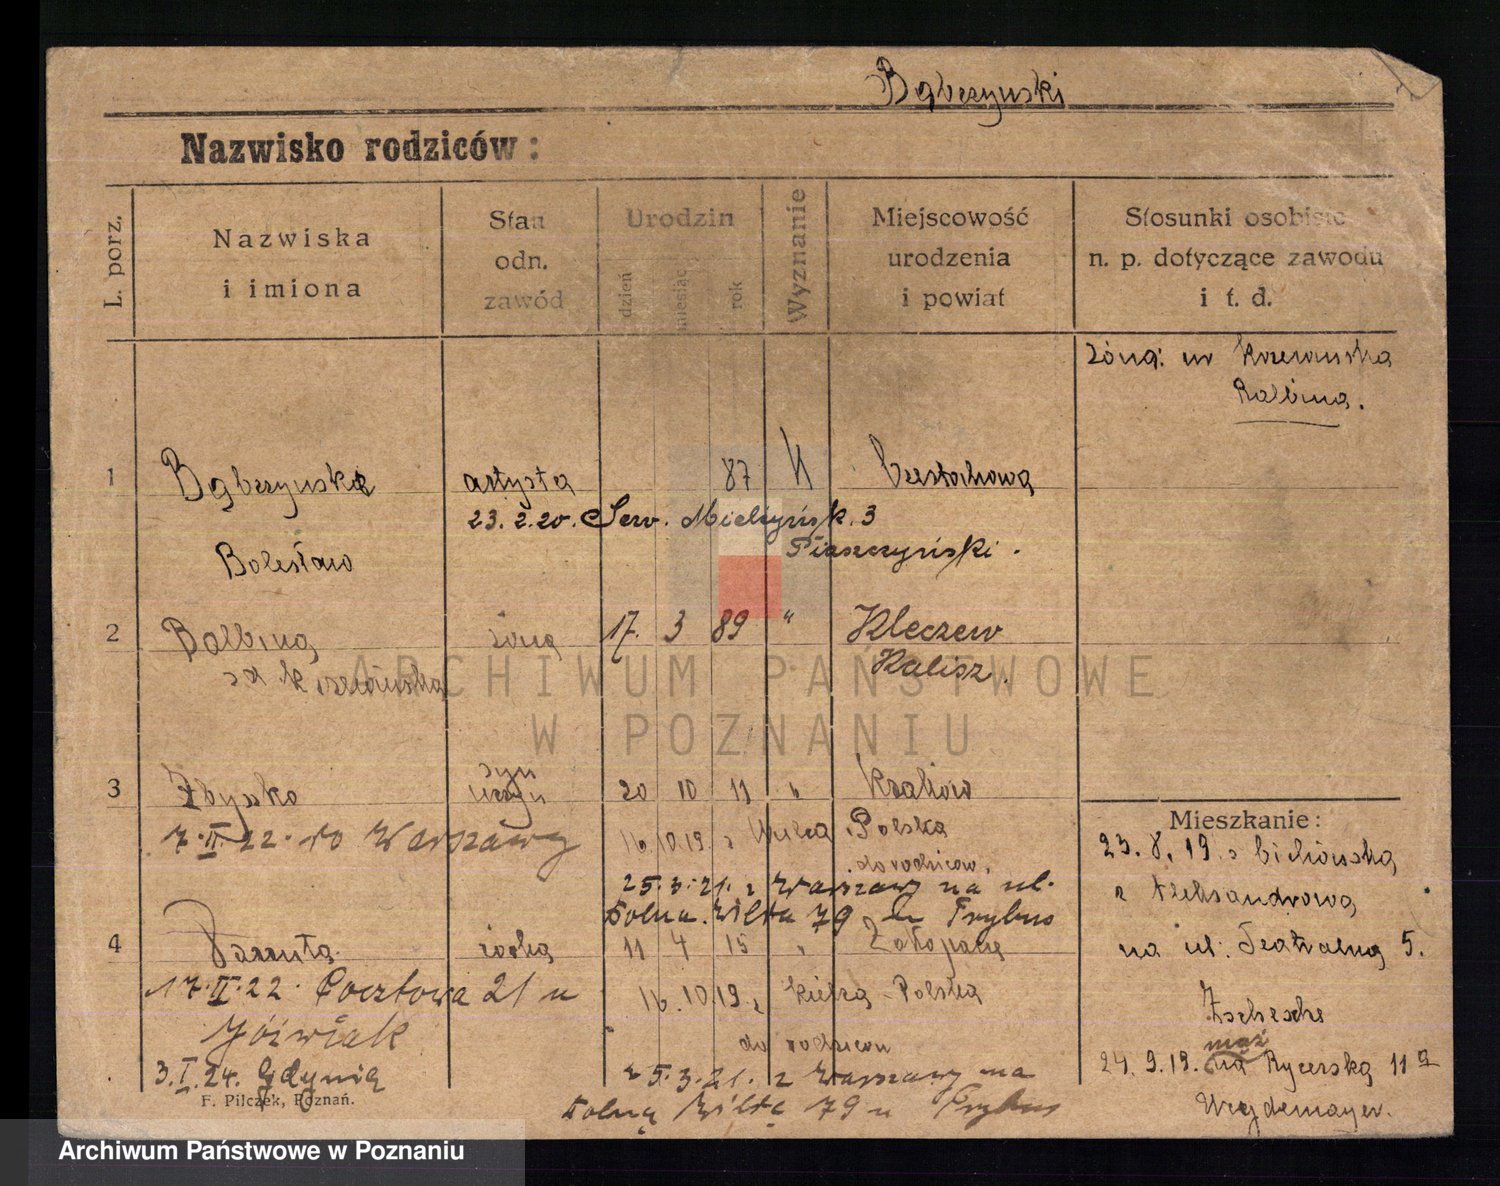 Bąbczynski
Nazwisko rodziców:
L. porz.
Nazwiska
i imiona
Stan
odn.
zawód
Urodzin
dzień
miesiąc
rok
Wyznanie
Miejscowość
urodzenia
i powiat
Stosunki osobiste
n. p. dotyczące zawodu
i t. d.
żona: ur
Balbina.
1
artysta
87
K
Czestochowa
23. 2. 20. Serw. Mielżyńsk. 3
Piaszczyński.
Bolesław
2
Balbina
żona
17. 3 89 "
Kleczew
Kalisz.
3
Zbyszko
syn
uczeń
20 10 11 "
Kraków
Mieszkanie:
7.II.22. do Warszawy
16.10.19. z Polska
do rodziców.
23.8.19. z
25.3.21. z Warszawy na ul.
z Aleksandrowa
Dolna Wilda 79 u Frybus
4
Danuta
córka
11 4 15 "
Zakopane
na ul. Teatralną 5.
17.II.22. Pocztowa 21 u
16.10.19. z Polska
Jóźwiak
Zschesche
do rodzicow
mąż
3.I.24. Gdynia
25.3.21. z Warszawy na
24.9.19. na Rycerską 11a
F. Pilczek, Poznań.
Dolną Wildę 79 u Frybus
Wegdemayer.
ARCHIWUM PAŃSTWOWE
W POZNANIU
Archiwum Państwowe w Poznaniu